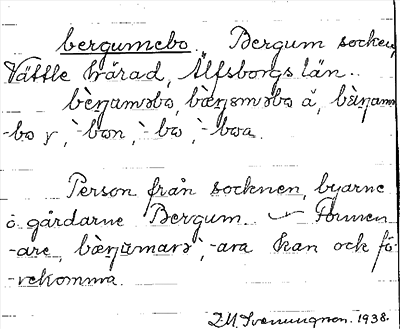 bergumebo. Bergum socken,
Vättle härad, Älfsborgs län.
bæ̀ŋaməbo, bæ̀ŋɐməbo å, bæ̀ŋam-
-bo y, `-bon, `-bo, `-boa.
Person från socknen, byarne
o. gårdarne Bergum. Formen
-are, bæ̀ŋamarə, -ara kan och fö-
-rekomma.
1938.